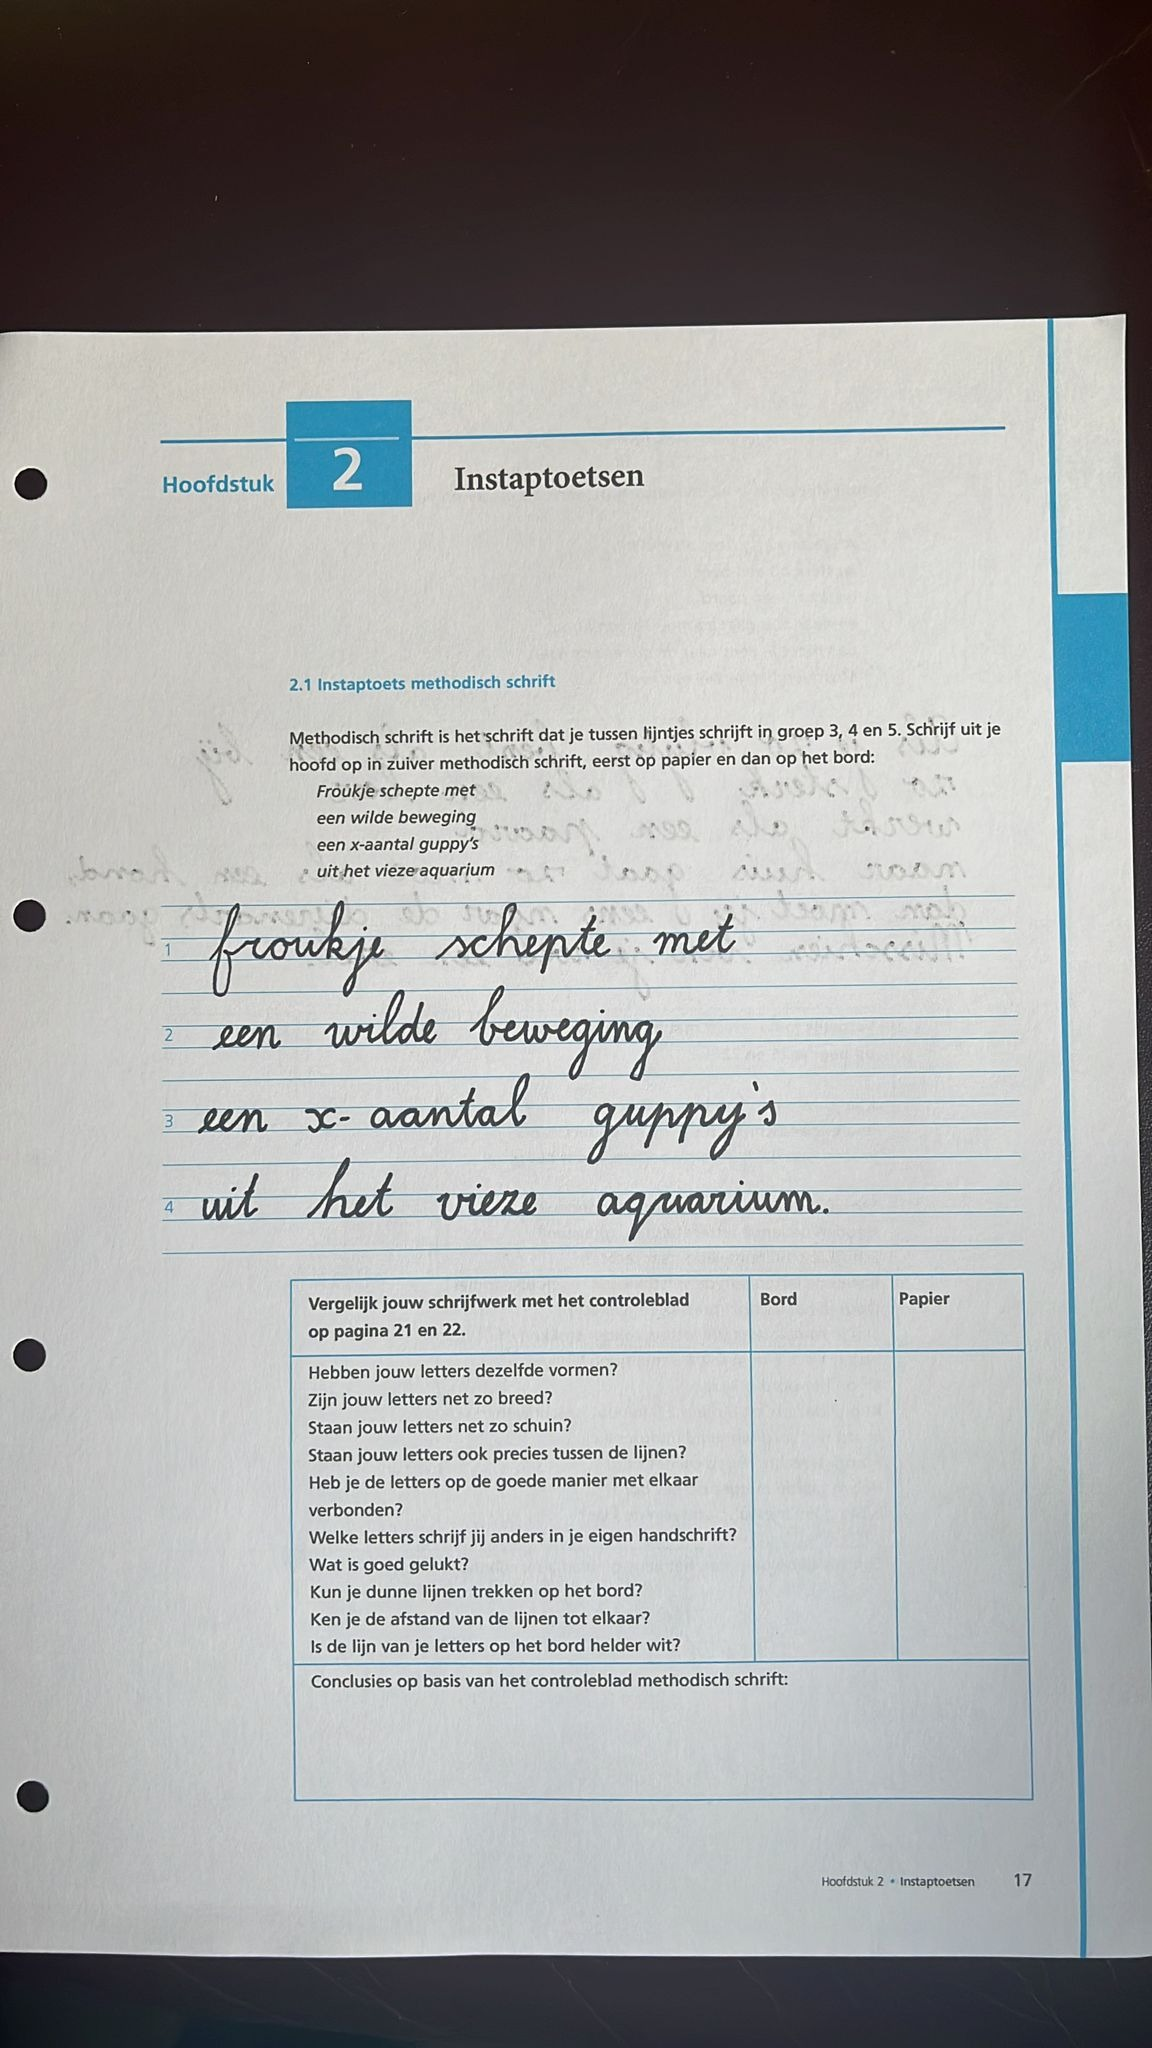 Hoofdstuk 2 Instaptoetsen
2.1 Instaptoets methodisch schrift
Methodisch schrift is het schrift dat je tussen lijntjes schrijft in groep 3, 4 en 5. Schrijf uit je
hoofd op in zuiver methodisch schrift, eerst op papier en dan op het bord:
Froukje schepte met
een wilde beweging
een x-aantal guppy's
uit het vieze aquarium
1 froukje schepte met
2 een wilde beweging
3 een x-aantal guppy's
4 uit het vieze aquarium.
Vergelijk jouw schrijfwerk met het controleblad Bord Papier
op pagina 21 en 22.
Hebben jouw letters dezelfde vormen?
Zijn jouw letters net zo breed?
Staan jouw letters net zo schuin?
Staan jouw letters ook precies tussen de lijnen?
Heb je de letters op de goede manier met elkaar
verbonden?
Welke letters schrijf jij anders in je eigen handschrift?
Wat is goed gelukt?
Kun je dunne lijnen trekken op het bord?
Ken je de afstand van de lijnen tot elkaar?
Is de lijn van je letters op het bord helder wit?
Conclusies op basis van het controleblad methodisch schrift:
Hoofdstuk 2 • Instaptoetsen 17